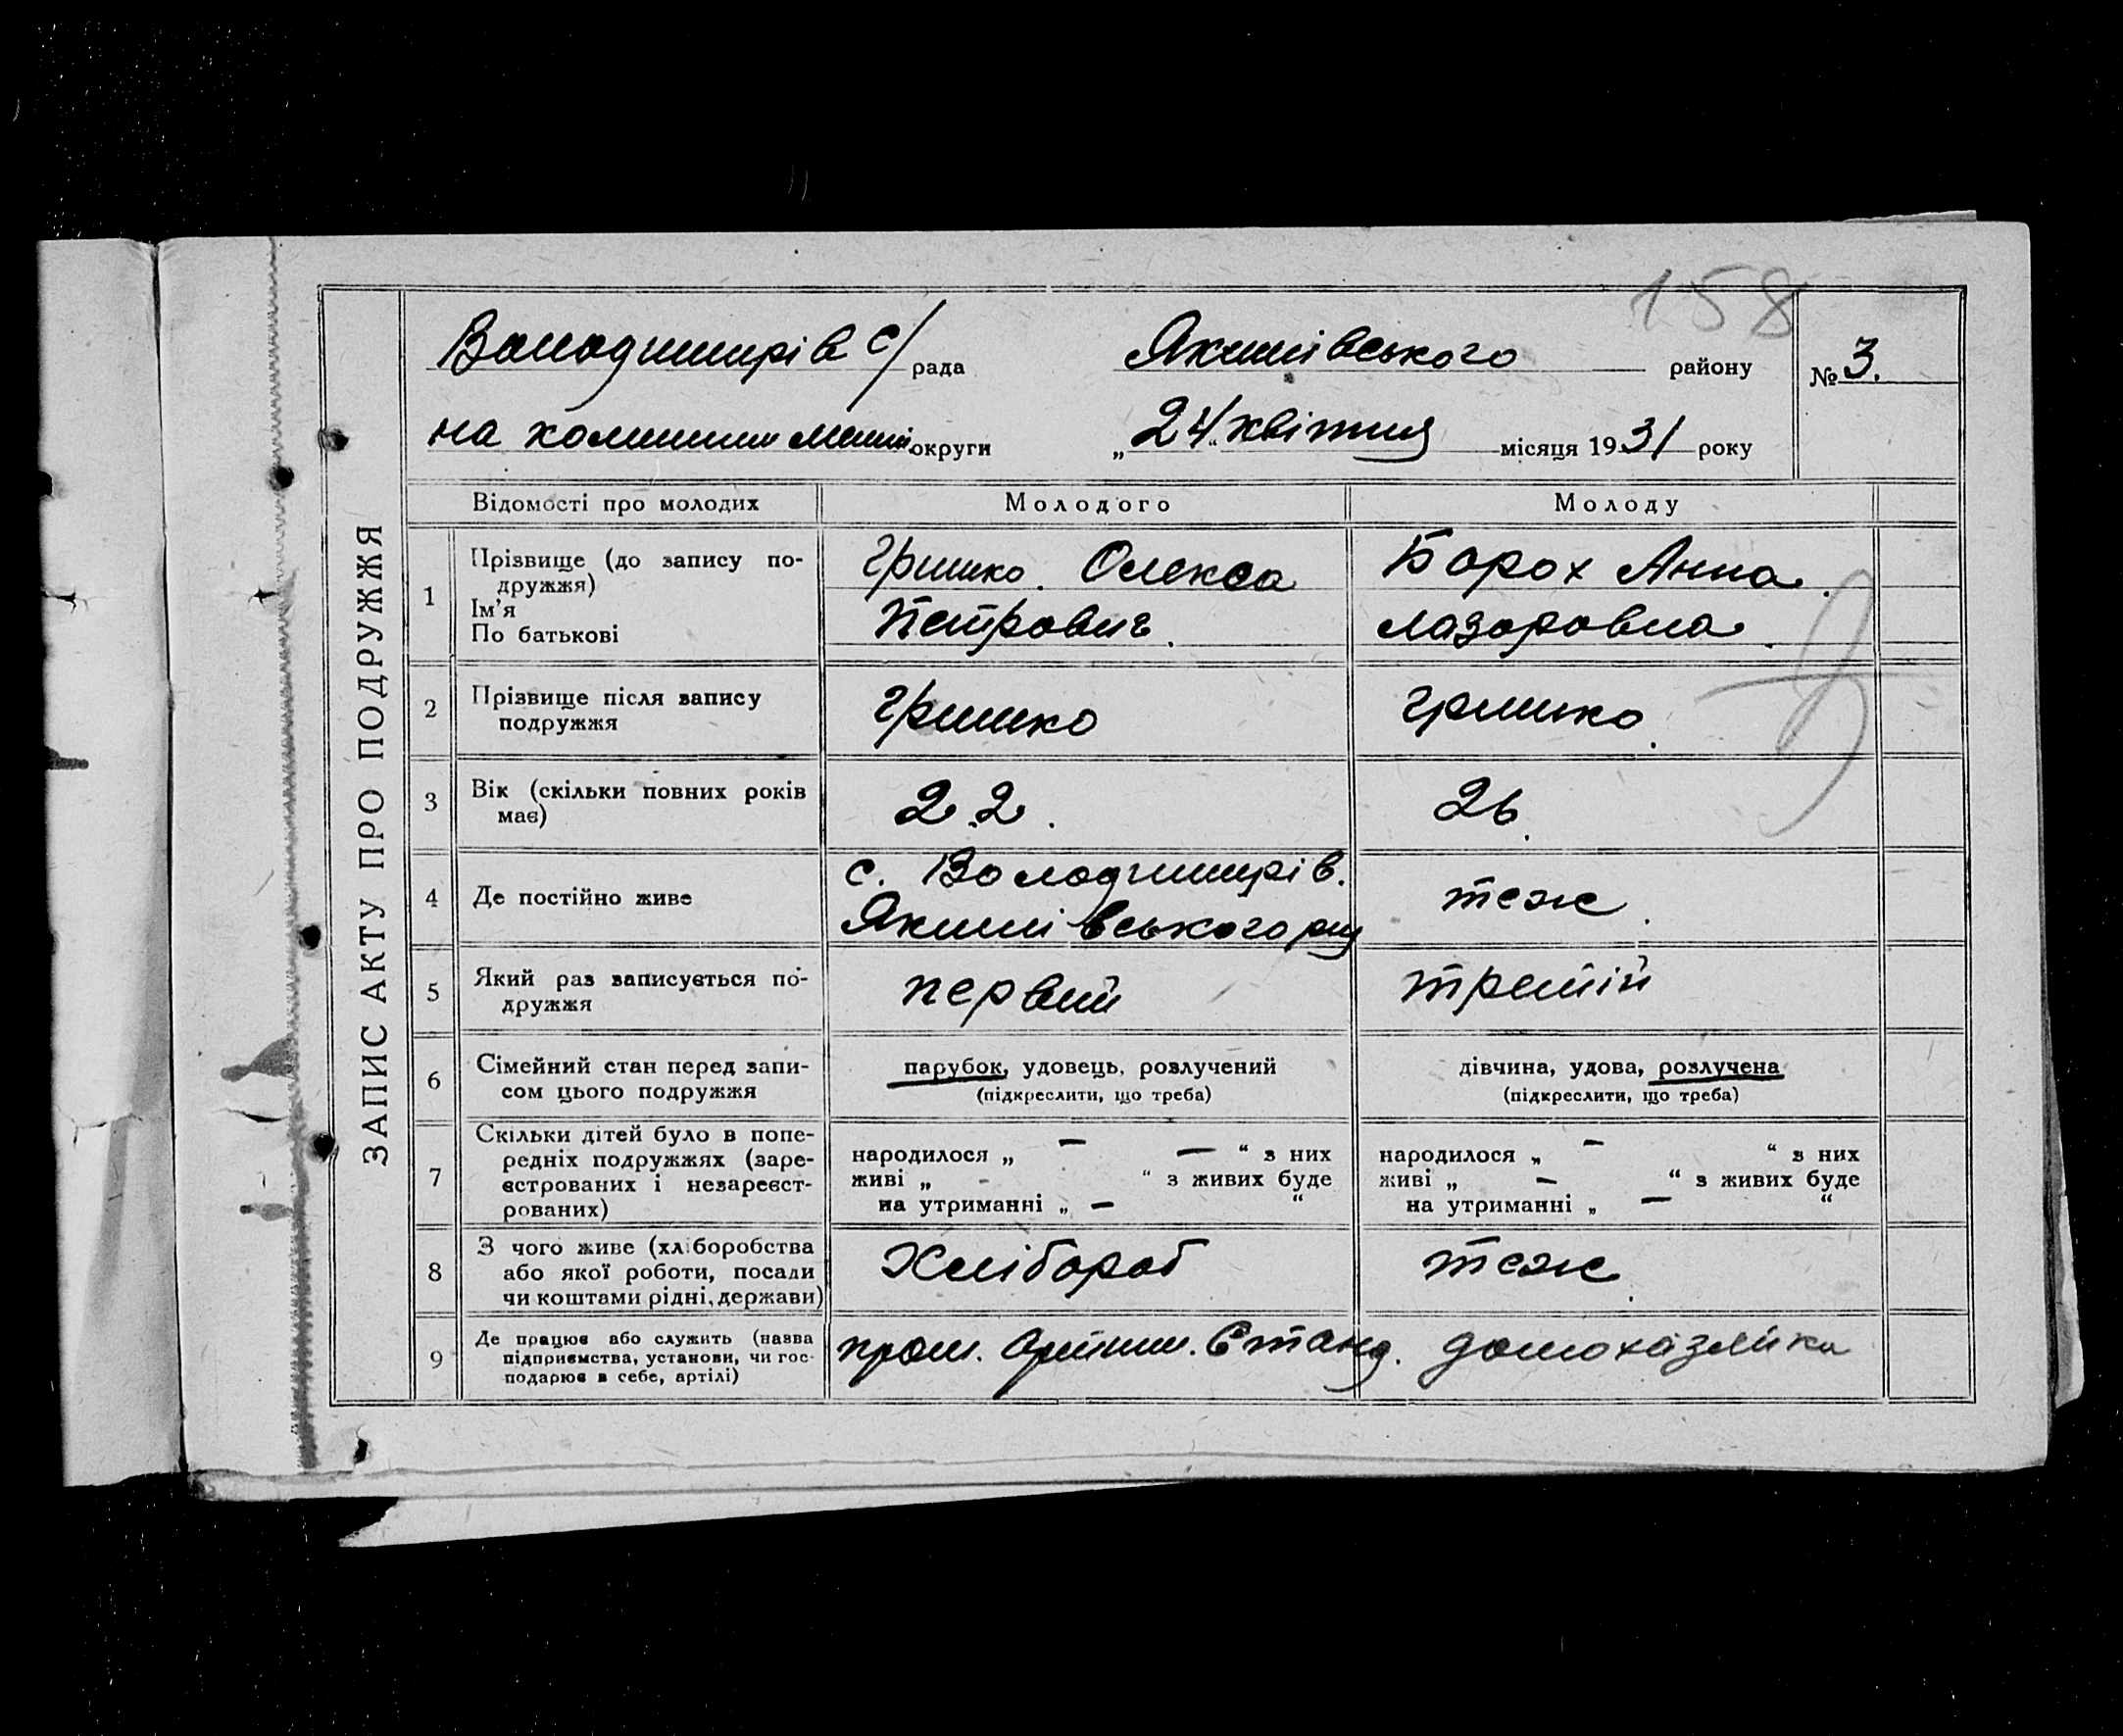 158
Володимирів с/рада Якимівського району №3.
на колишн Меліт округи „24" квітня місяця 1931 року
ЗАПИС АКТУ ПРО ПОДРУЖЖЯ
Відомості про молодих Молодого Молоду
1 Прізвище (до запису по-
дружжя)
Ім'я
По батькові
Гришко. Олекса
Петрович.
Борох Анна.
Лазоровна
2 Прізвище після запису
подружжя
Гришко
Гришко.
3 Вік (скільки повних років
має)
22.
26.
4 Де постійно живе
с. Володимирів.
Якимівського р-ну
теж.
5 Який раз записується по-
дружжя
первий
третій
6 Сімейний стан перед запи-
сом цього подружжя
парубок, удовець, розлучений
(підкреслити, що треба)
дівчина, удова, розлучена
(підкреслити, що треба)
7 Скільки дітей було в попе-
редніх подружжях (заре-
єстрованих і незареєст-
рованих)
народилося „ — — “ з них
живі „ - “ з живих буде
на утриманні „ — “
народилося „ — “ з них
живі „ — “ з живих буде
на утриманні „ — “
8 З чого живе (хліборобства
або якої роботи, посади
чи коштами рідні, держави)
Хлібороб
теж.
9 Де працює або служить (назва
підприємства, установи, чи гос-
подарює в себе, артілі)
пром.
домохазяйка